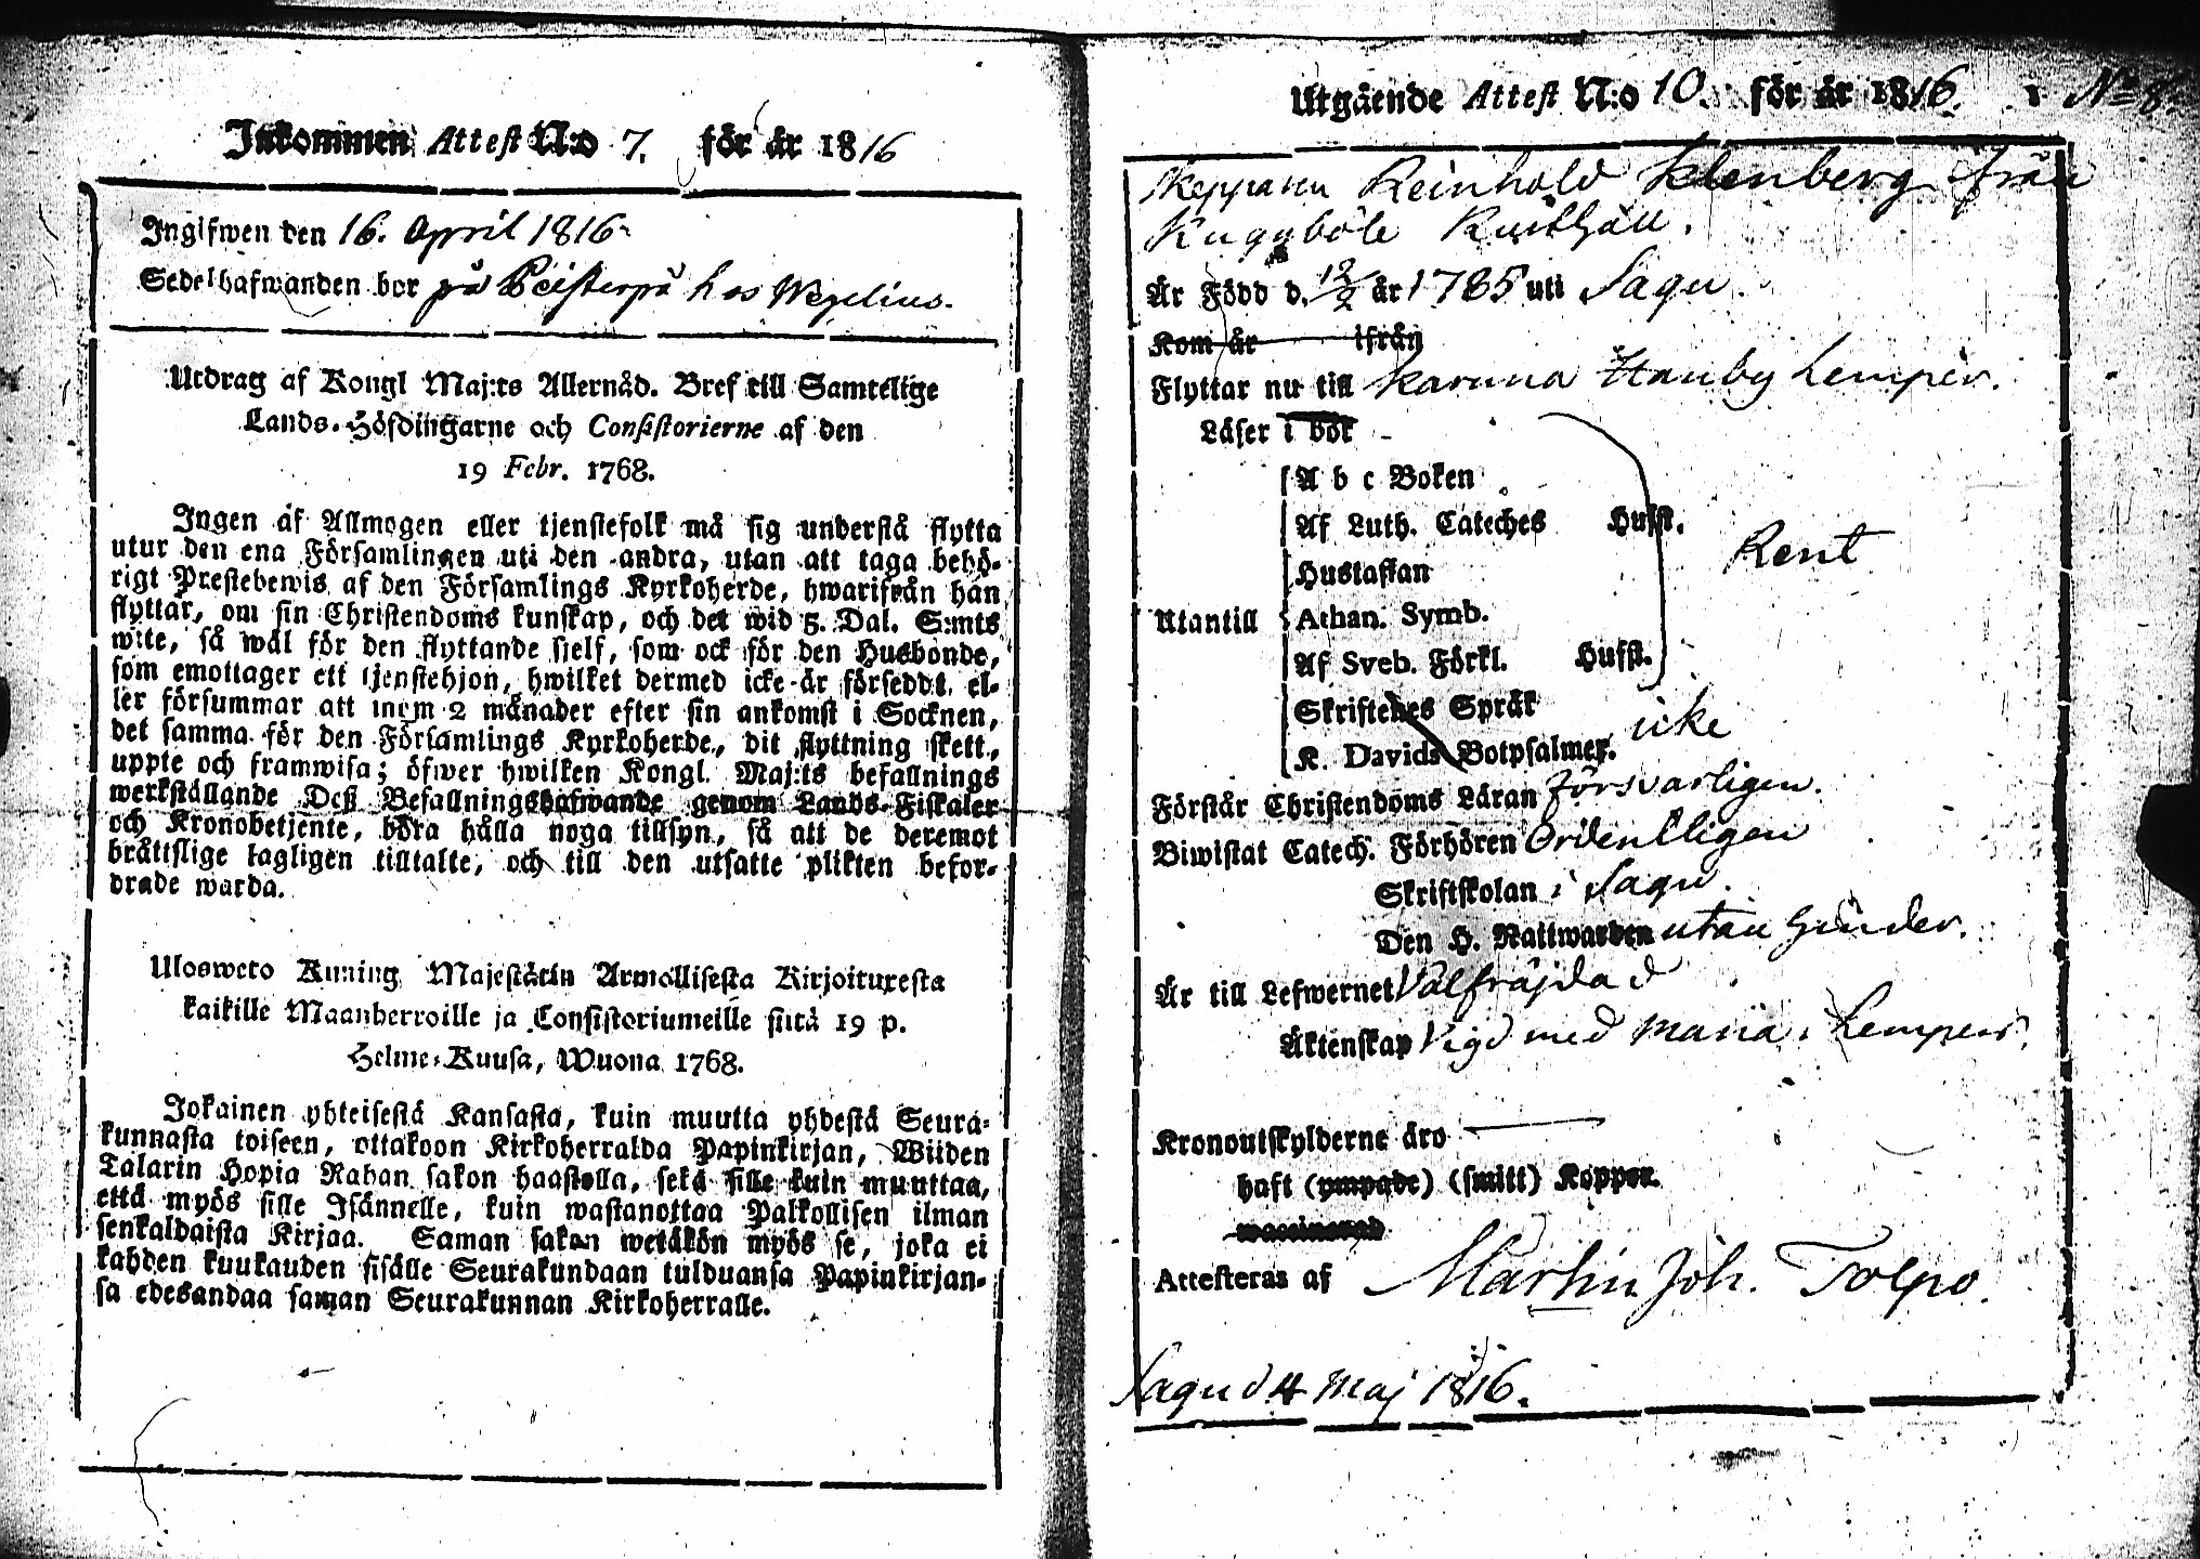 Inkommen Attest N:o 7. för år 1816
Ingifwen den 16. April 1816.
Sedelhafwanden bor på Peisterpä hos Wegelius.
Utdrag af Kongl Maj:ts Allernåd. Bref till Samtelige
Lands-Höfdingarne och Consistorierne af den
19 Febr. 1768.
Ingen af Allmogen eller tjenstefolk må sig understå flytta
utur den ena Församlingen uti den andra, utan att taga behö-
rigt Prestebewis af den Församlings Kyrkoherde, hwarifrån han
flyttar, om sin Christendoms kunskap, och det wid 5. Dal. S:mts
wite, så wäl för den flyttande sjelf, som ock för den Husbonde,
som emottager ett tjenstehjon, hwilket dermed icke är förseddt, el-
ler försummar att inom 2 månader efter sin ankomst i Socknen,
det samma för den Församlings Kyrkoherde, dit flyttning skett,
uppte och framwisa; öfwer hwilken Kongl. Maj:ts befallnings
werkställande Deß Befallningshafwande genom Lands-Fiskaler
och Kronobetjente, böra hålla noga tillsyn, så att de deremot
bråttslige lagligen tilltalte, och till den utsatte plikten befor-
drade warda.
Ulosweto Kuning Majestätin Armollisesta Kirjoituxesta
kaikille Maanherroille ja Consistoriumeille siitä 19 p.
Helme-Kuusa, Wuona 1768.
Jokainen yhteisestä Kansasta, kuin muutta yhdestä Seura-
kunnasta toiseen, ottakoon Kirkoherralda Papinkirjan, Wiiden
Talarin Hopia Rahan sakon haastolla, sekä sille kuin muuttaa,
että myös sille Isännelle, kuin wastanottaa Palkollisen ilman
senkaldaista Kirjaa. Saman sakon wetäkön myös se, joka ei
kahden kuukauden sisälle Seurakundaan tulduansa Papinkirjan-
sa edesandaa saman Seurakunnan Kirkoherralle.
Utgående Attest N:o 10. för år 1816. N:o 8.
Skepparen Reinhold Klenberg från
Kuggböle Rusthåll.
Är Född d. 12/2 år 1785 uti Sagu.
Kom år ifrån
Flyttar nu till Karuna Stanby Lemper.
Läser i bok
A b c Boken
Af Luth. Cateches Hufst.
Hustaflan
Utantill Athan. Symb.
Rent
Af Sveb. Förkl. Hufst.
Skriftenes Språk
K. Davids Botpsalmer. icke
Förstår Christendoms Läran försvarligen.
Biwistat Catech. Förhören Ordentligen
Skriftskolan i Sagu.
Den H. Nattwarden utan hinder.
Är till Lefwernet Välfräjdad
Äktenskap Vigd med Maria Lemper.
Kronoutskylderne äro
haft (ympade) (smitt) Koppor.
waccinerad
Attesteras af Martin Joh. Tolpo.
Sagu d 4 Maj 1816.